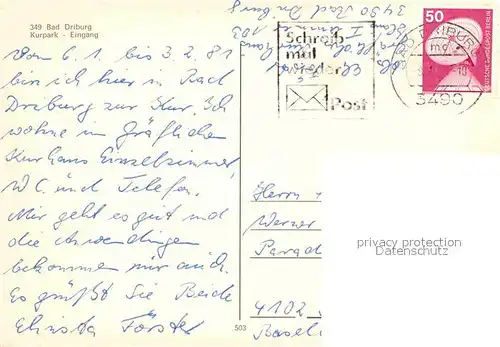 349 Bad Driburg
Kurpark - Eingang
Vom 6.1. bis 3.2.81
bin ich hier in Bad
Driburg zur Kur. Ich
wohne im Gräflichen
Kurhaus Einzelzimmer,
WC. und Telefon.
Mir geht es gut und
die Anwendungen
bekommen mir auch.
Es grüßt Sie Beide
Christa Förster
503
3490 Bad Driburg
103
Schreib
mal
wieder
Post
50
DEUTSCHE BUNDESPOST BERLIN
3490
Herrn
Werner
Parad
4102
Basel
privacy protection
Datenschutz